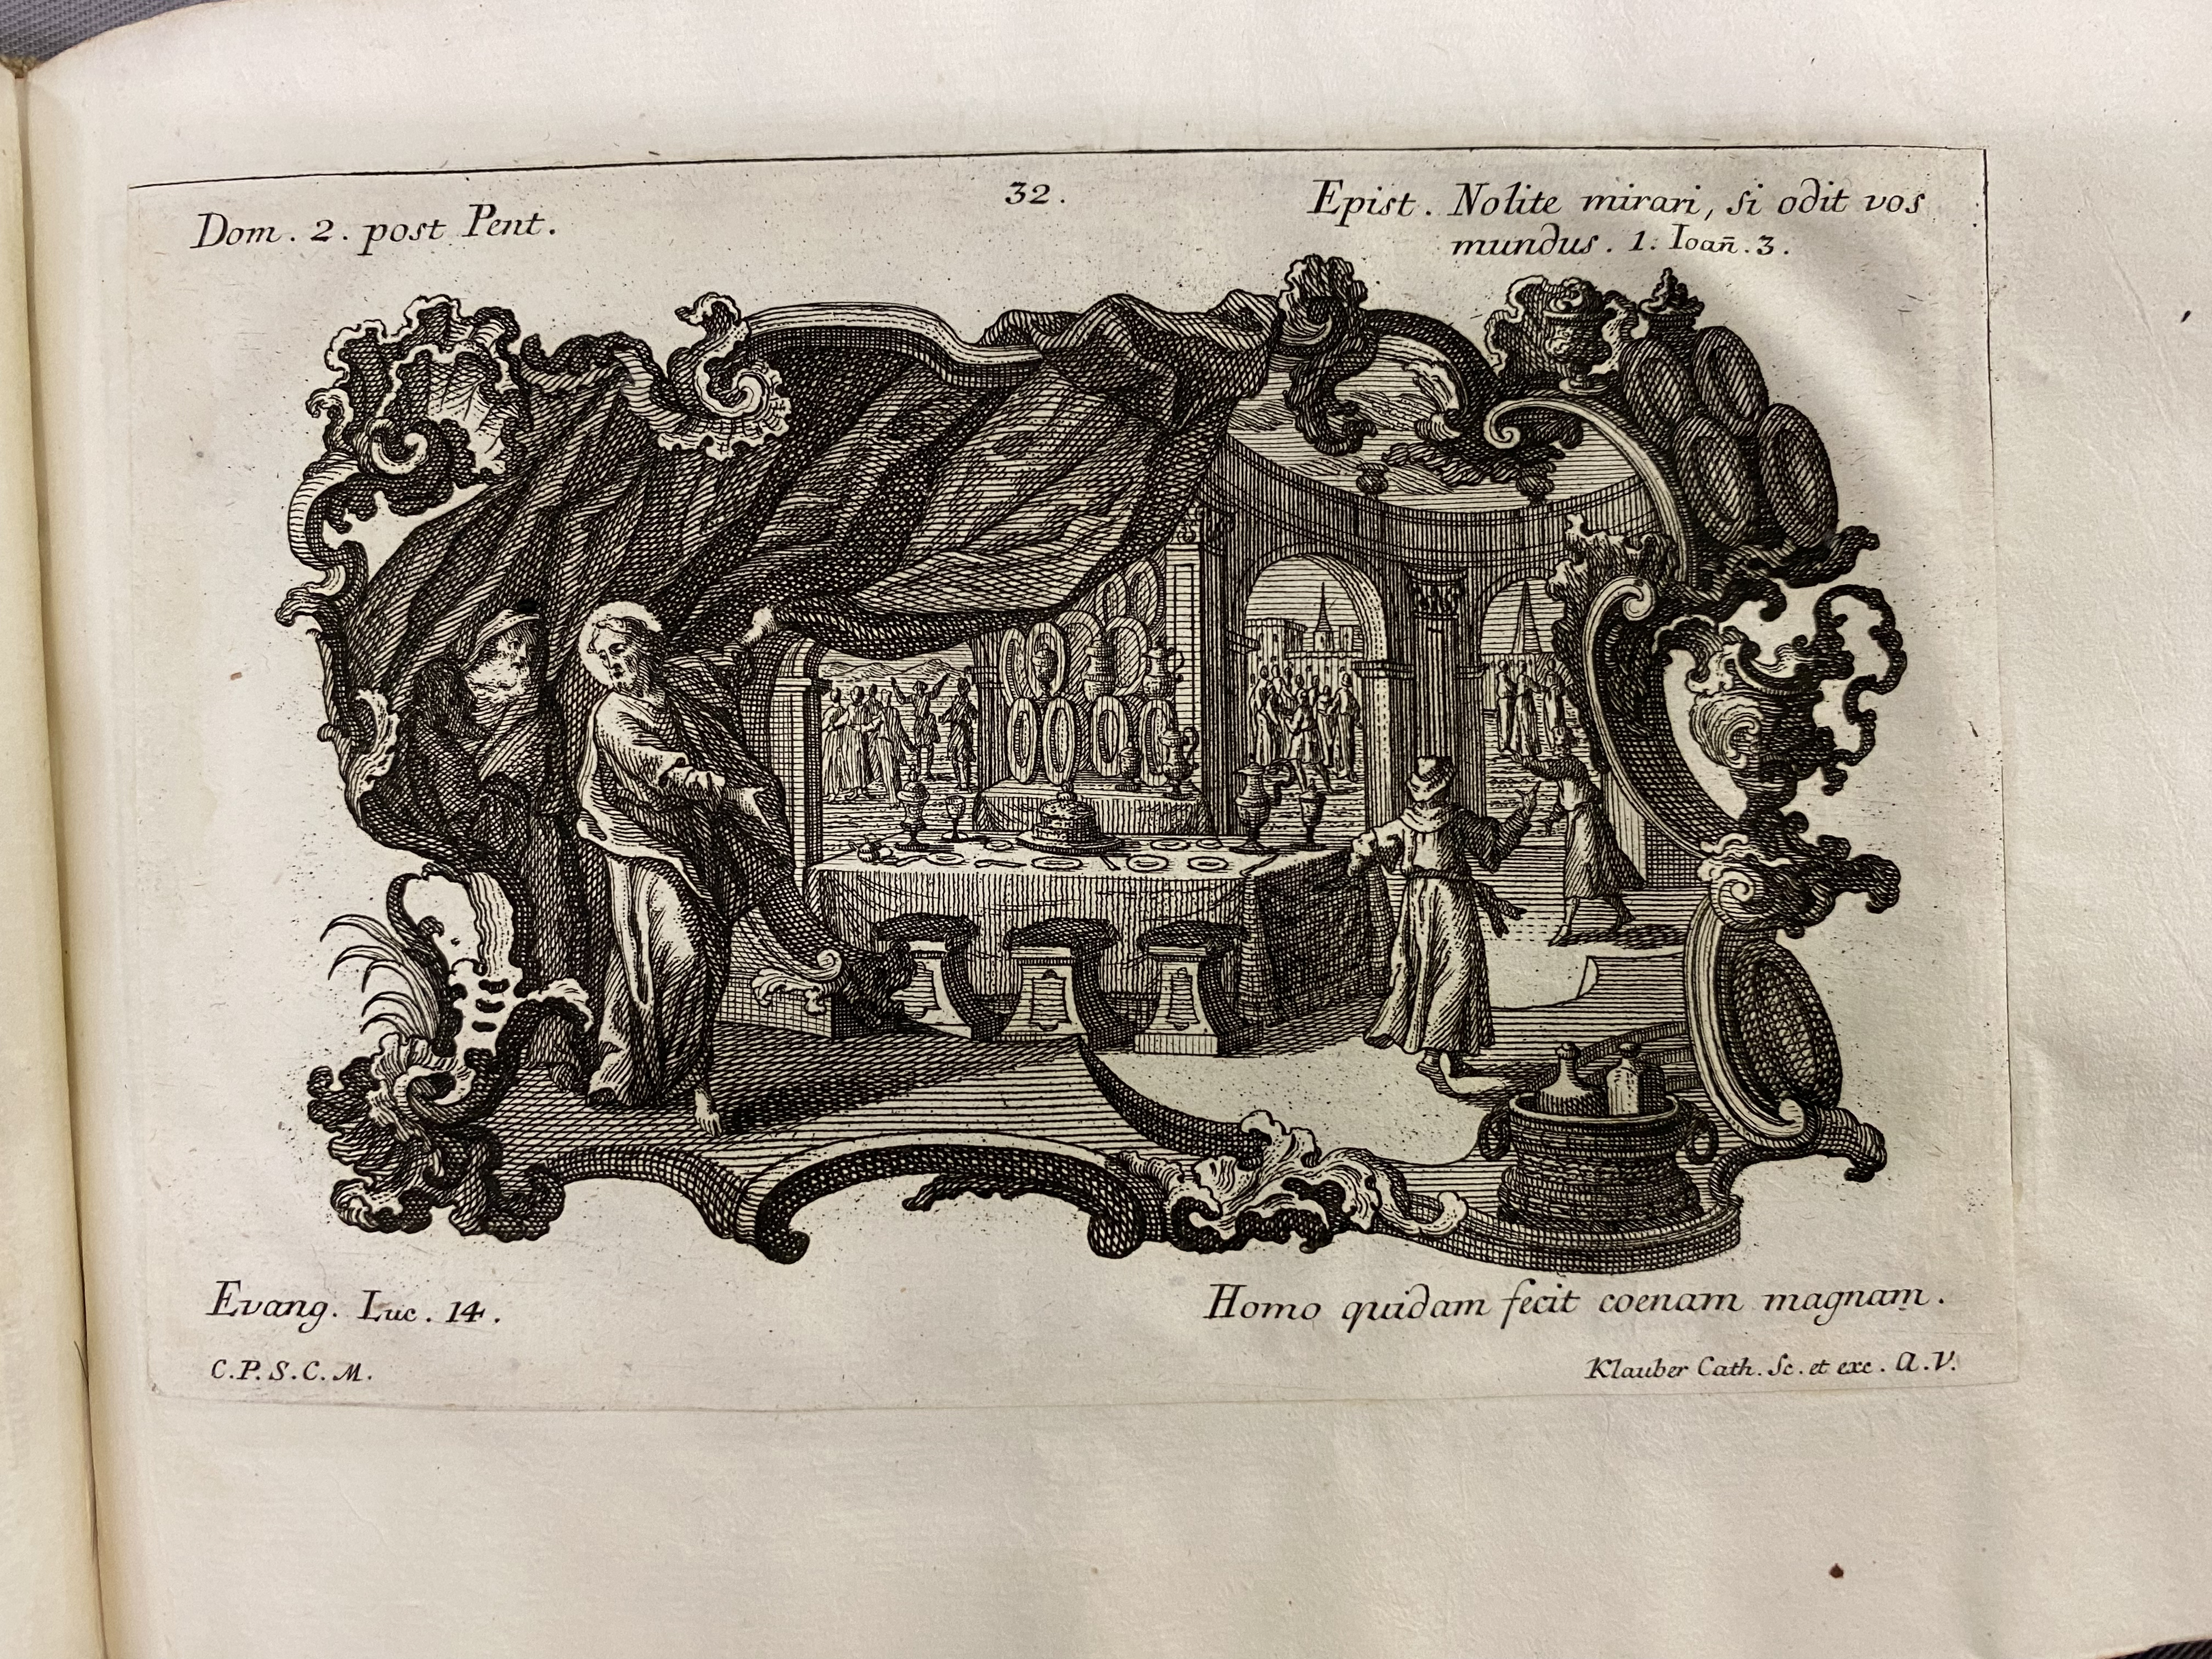 Dom. 2. post Pent.
32.
Epist. Nolite mirari, si odit vos
mundus. 1. Ioañ. 3.
Evang. Luc. 14.
Homo quidam fecit coenam magnam.
C.P.S.C.M.
Klauber Cath. Sc. et exc. A.V.